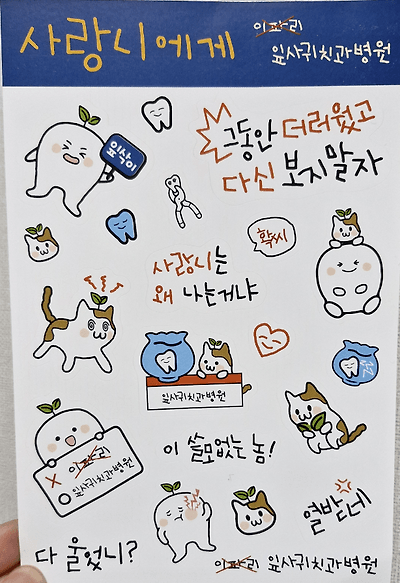 사랑니에게
이파리
잎사귀치과병원
잎삭이
그동안 더러웠고
다신 보지말자
확씨
사랑니는
왜 나는거냐
잎사귀치과병원
이파리
잎사귀치과병원
이 쓸모없는 놈!
열받네
다 울었니?
이파리 잎사귀치과병원